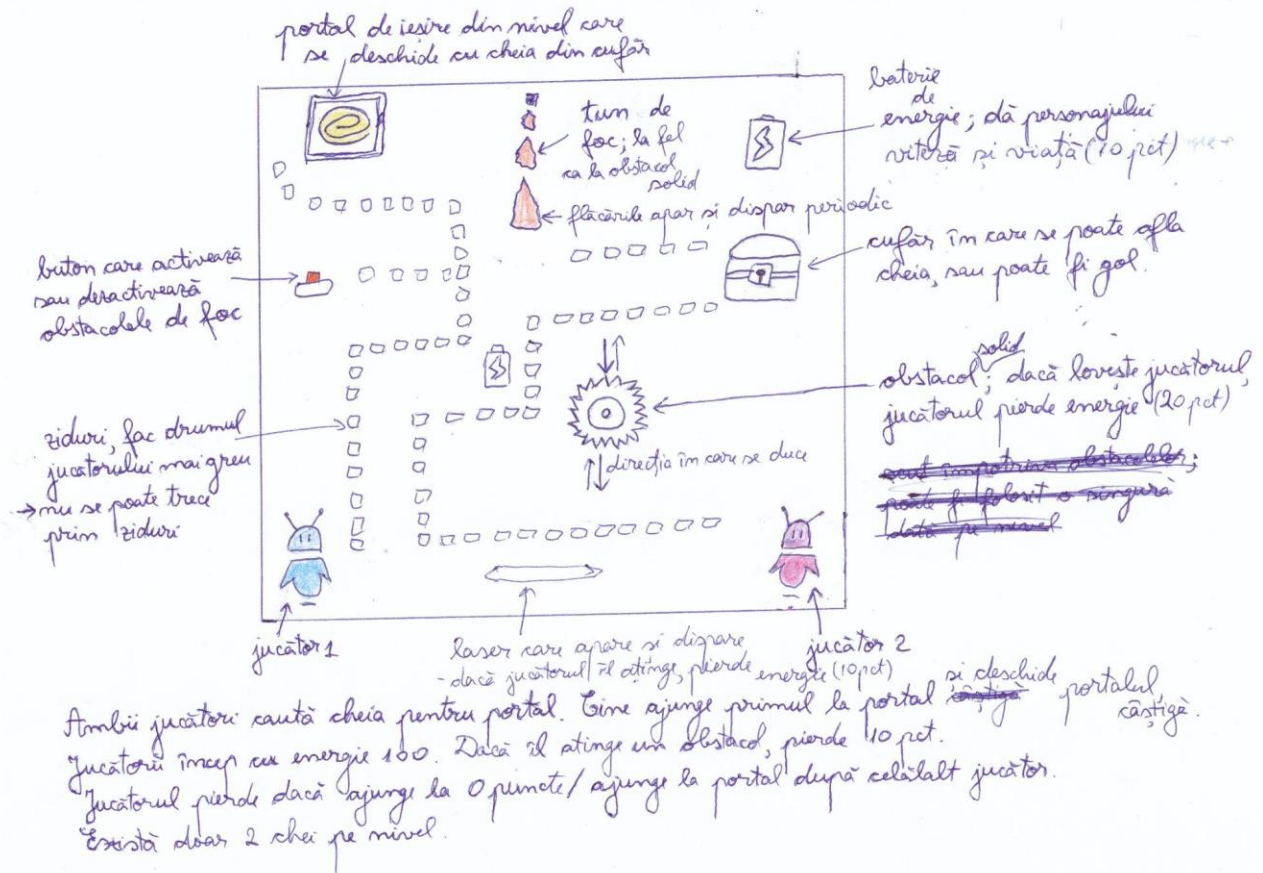 portal de ieșire din nivel care
se deschide cu cheia din cufăr
baterie
de
energie; dă personajului
viteză și viață (10 pct)
tun de
foc; la fel
ca la obstacol
solid
flăcările apar și dispar periodic
cufăr în care se poate afla
cheia, sau poate fi gol.
buton care activează
sau dezactivează
obstacolele de foc
solid
obstacol; dacă lovește jucătorul,
jucătorul pierde energie (20 pct)
scut împotriva obstacolelor;
poate fi folosit o singură
dată pe nivel
ziduri, fac drumul
jucătorului mai greu
→ nu se poate trece
prin ziduri
direcția în care se duce
jucător 1
laser care apare si dispare
- dacă jucătorul îl atinge, pierde energie (10 pct)
jucător 2
Ambii jucători caută cheia pentru portal. Cine ajunge primul la portal câștigă și deschide portalul, câștigă.
Jucătorii încep cu energie 100. Dacă îl atinge un obstacol, pierde 10 pct.
Jucătorul pierde dacă ajunge la 0 puncte/ ajunge la portal după celălalt jucător.
Există doar 2 chei pe nivel.